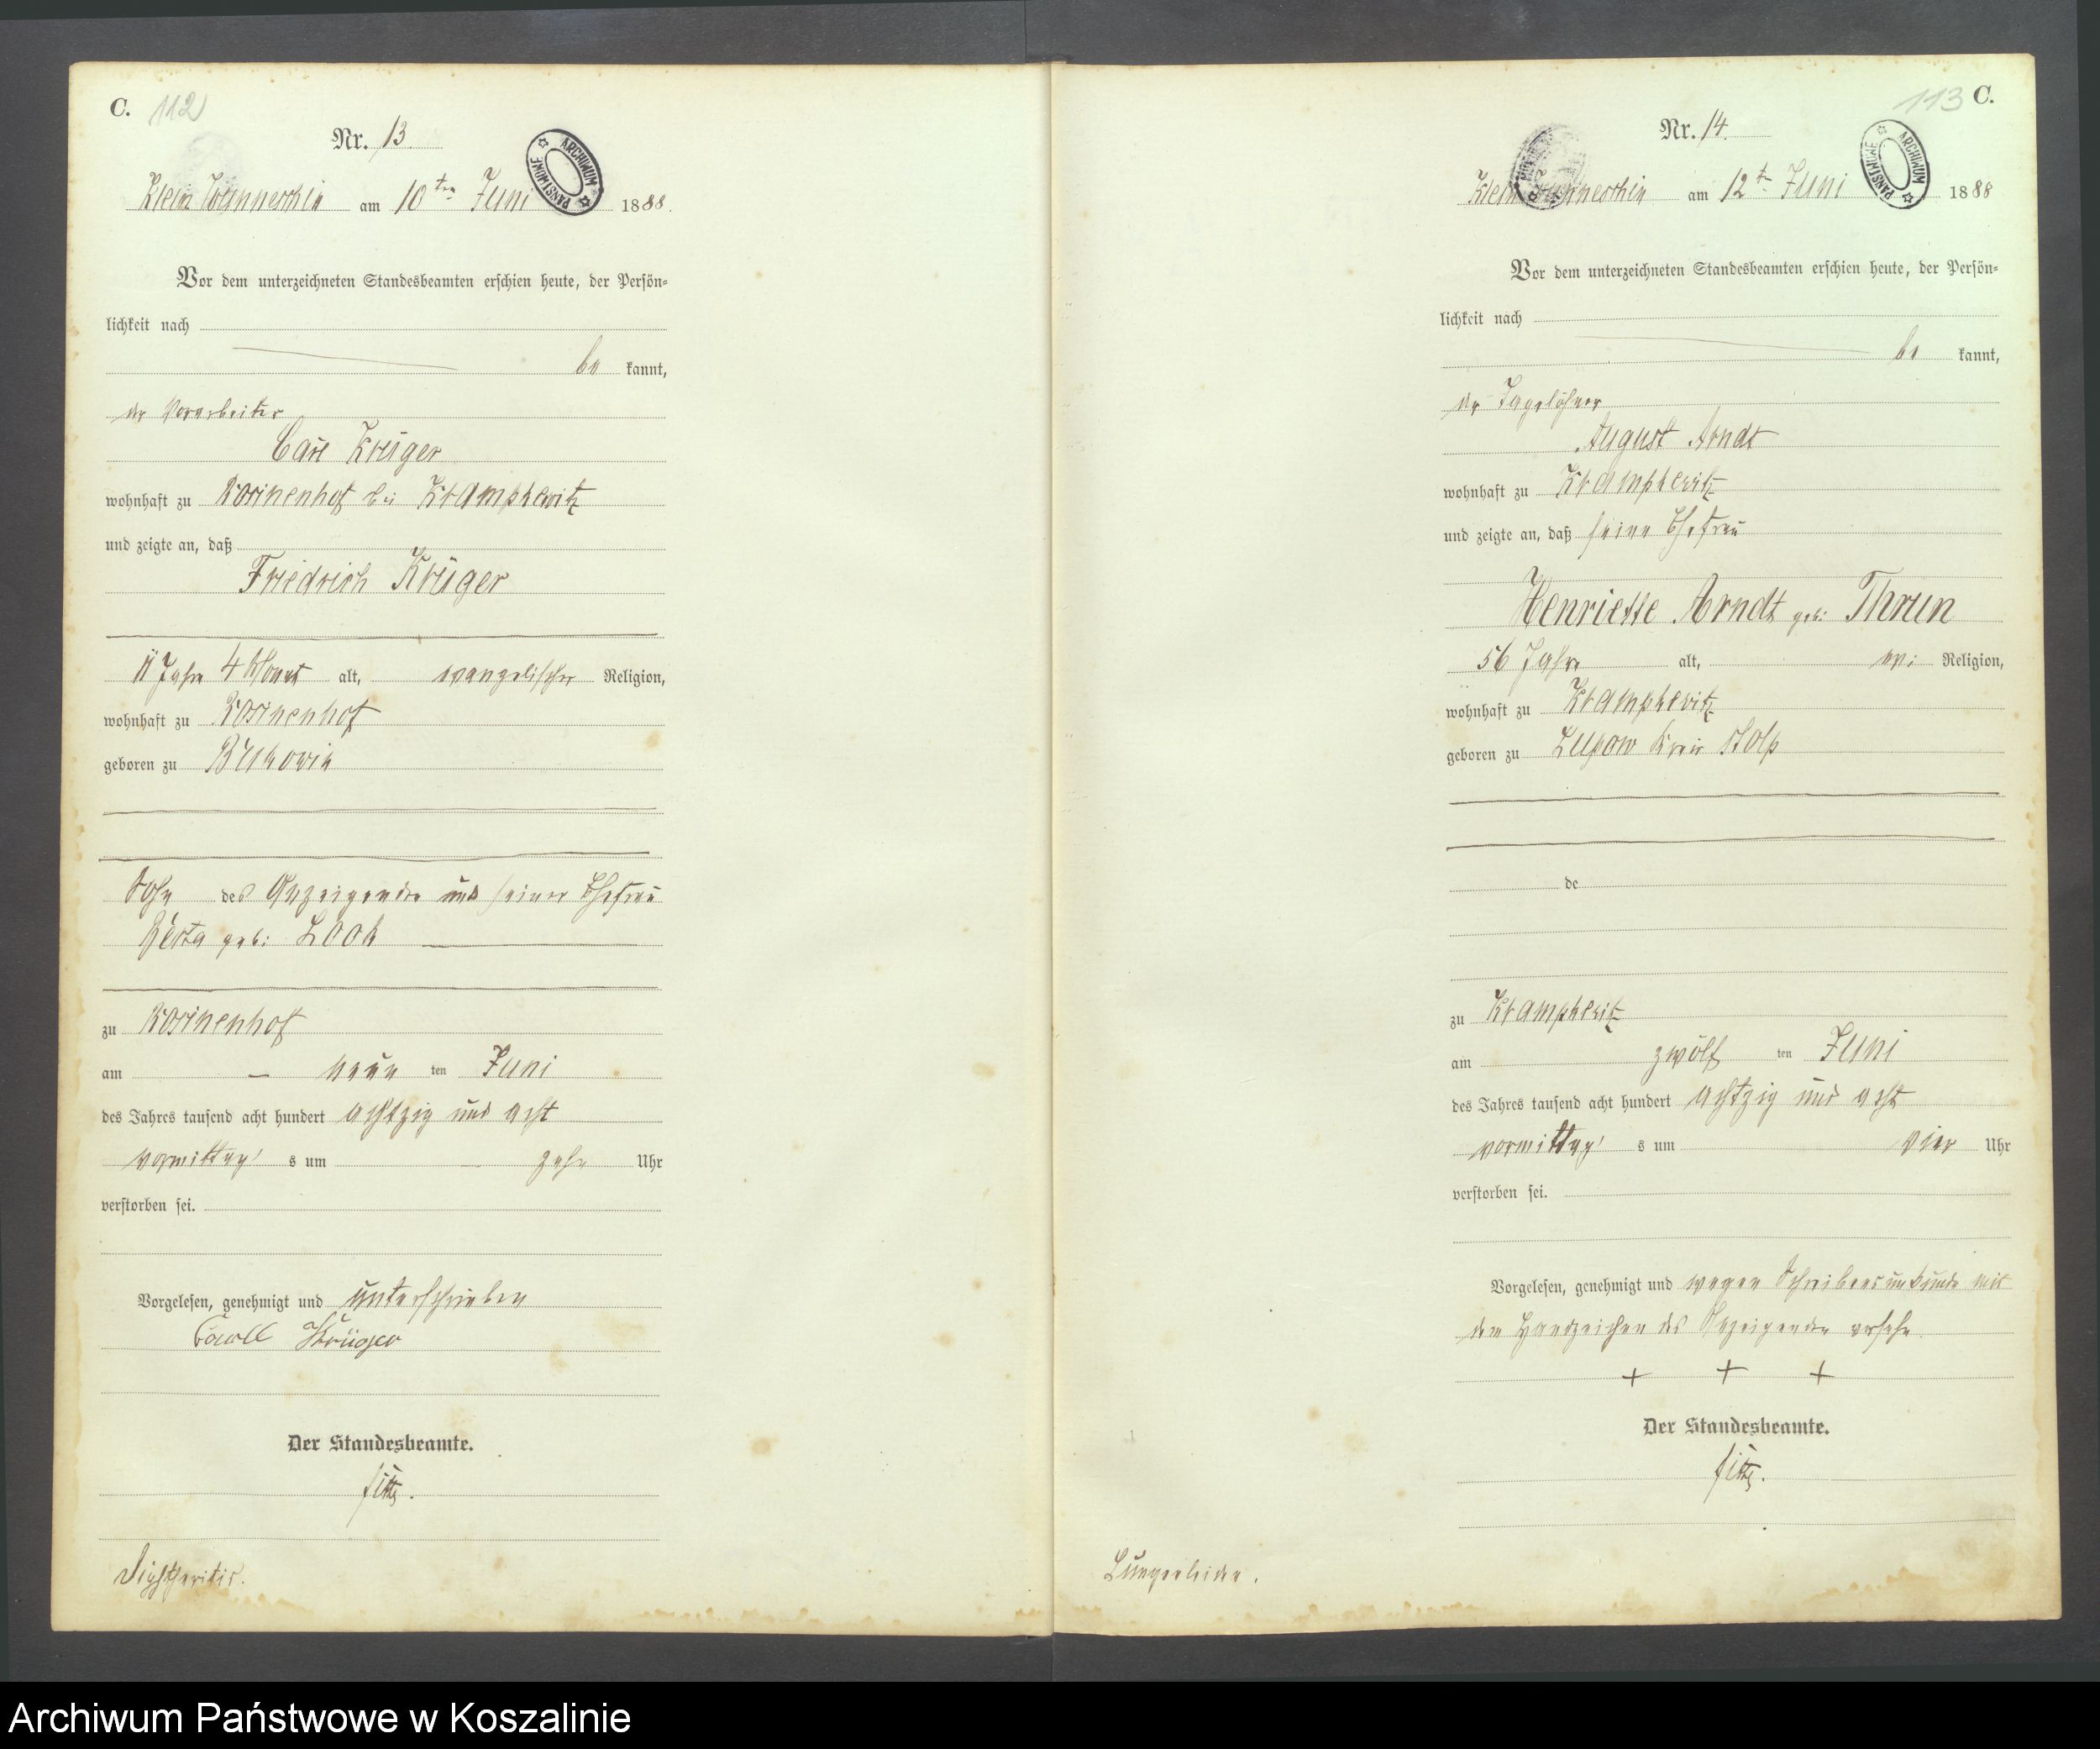 C. 112
Nr. 13.
ARCHIWUM PAŃSTWOWE
Klein Wunneschin am 10ten Juni 1888.
Vor dem unterzeichneten Standesbeamten erschien heute, der Persön-
lichkeit nach
be kannt,
der Vorarbeiter
Carl Krüger
wohnhaft zu Rosinenhof bei Krampkewitz
und zeigte an, daß
Friedrich Krüger
Jahre 4 Monat alt, evangelischer Religion,
wohnhaft zu Rosinenhof
geboren zu Bukowin
Sohn des Anzeigenden und seiner Ehefrau
geb: Look
zu Rosinenhof
am neun ten Juni
des Jahres tausend acht hundert achtzig und acht
vormittag s um zehn Uhr
verstorben sei.
Vorgelesen, genehmigt und unterschrieben
Carll Krüger
Der Standesbeamte.
Diphtheritis.
113 C.
Nr. 14.
ARCHIWUM PAŃSTWOWE
Klein Wunneschin am 12t Juni 1888
Vor dem unterzeichneten Standesbeamten erschien heute, der Persön-
lichkeit nach
be kannt,
der Tagelöhner
August Arndt
wohnhaft zu Krampkewitz
und zeigte an, daß seine Ehefrau
Henriette Arndt geb: Thrun
56 Jahre alt, ev: Religion,
wohnhaft zu Krampkewitz
geboren zu Lupow Kreis Stolp
de
zu Krampkewitz
am zwölf ten Juni
des Jahres tausend acht hundert achtzig und acht
vormittag s um vier Uhr
verstorben sei.
Vorgelesen, genehmigt und wegen Schreibensunkunde mit
dem Handzeichen des Anzeigenden versehn.
+ + +
Der Standesbeamte.
Lungenleiden.
Archiwum Państwowe w Koszalinie